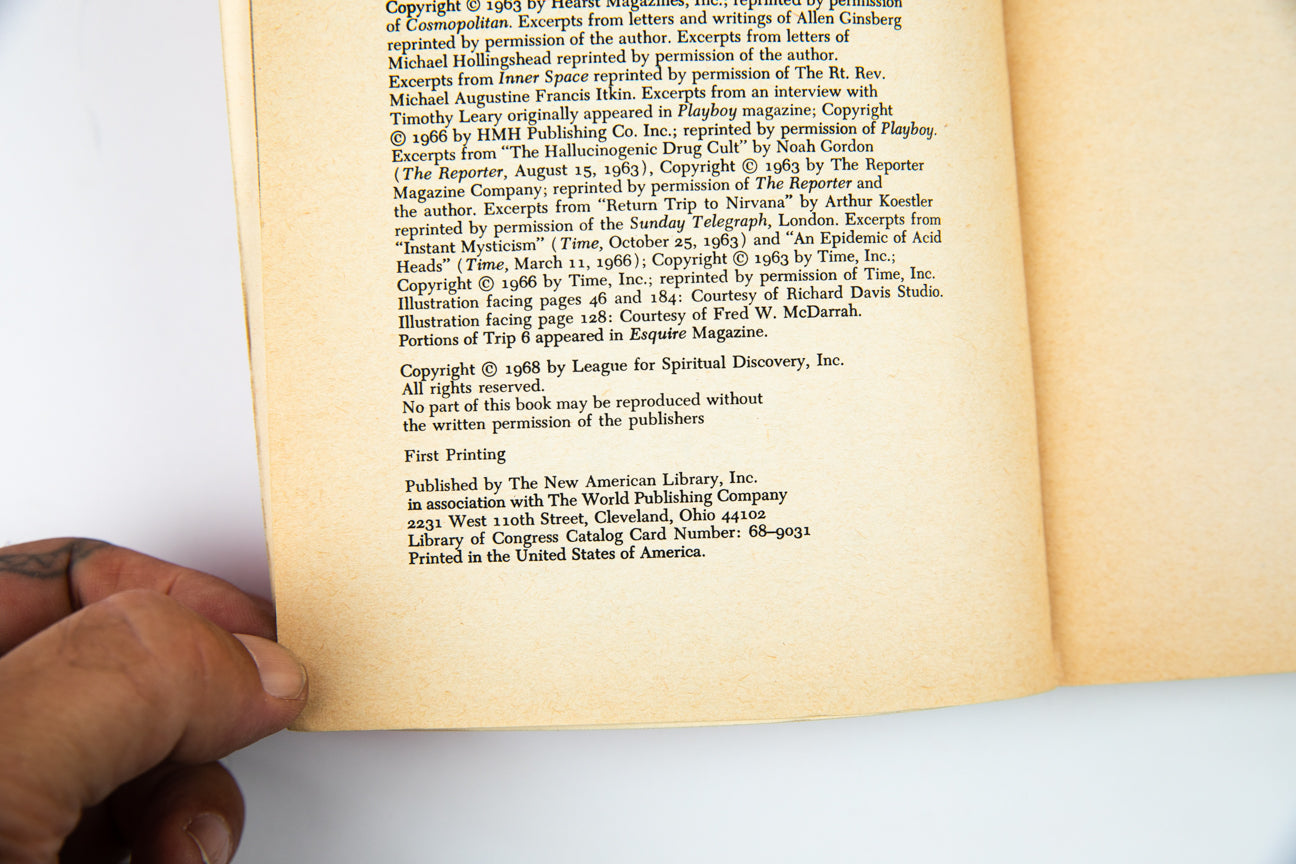 Copyright © 1963 by Hearst Magazines, Inc.; reprinted by permission
of Cosmopolitan. Excerpts from letters and writings of Allen Ginsberg
reprinted by permission of the author. Excerpts from letters of
Michael Hollingshead reprinted by permission of the author.
Excerpts from Inner Space reprinted by permission of The Rt. Rev.
Michael Augustine Francis Itkin. Excerpts from an interview with
Timothy Leary originally appeared in Playboy magazine; Copyright
© 1966 by HMH Publishing Co. Inc.; reprinted by permission of Playboy.
Excerpts from “The Hallucinogenic Drug Cult” by Noah Gordon
(The Reporter, August 15, 1963), Copyright © 1963 by The Reporter
Magazine Company; reprinted by permission of The Reporter and
the author. Excerpts from “Return Trip to Nirvana” by Arthur Koestler
reprinted by permission of the Sunday Telegraph, London. Excerpts from
“Instant Mysticism” (Time, October 25, 1963) and “An Epidemic of Acid
Heads” (Time, March 11, 1966); Copyright © 1963 by Time, Inc.;
Copyright © 1966 by Time, Inc.; reprinted by permission of Time, Inc.
Illustration facing pages 46 and 184: Courtesy of Richard Davis Studio.
Illustration facing page 128: Courtesy of Fred W. McDarrah.
Portions of Trip 6 appeared in Esquire Magazine.
Copyright © 1968 by League for Spiritual Discovery, Inc.
All rights reserved.
No part of this book may be reproduced without
the written permission of the publishers
First Printing
Published by The New American Library, Inc.
in association with The World Publishing Company
2231 West 110th Street, Cleveland, Ohio 44102
Library of Congress Catalog Card Number: 68–9031
Printed in the United States of America.